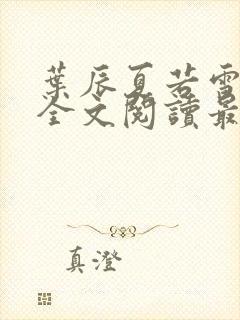 葉辰夏若雪
全文閱讀最
真澄